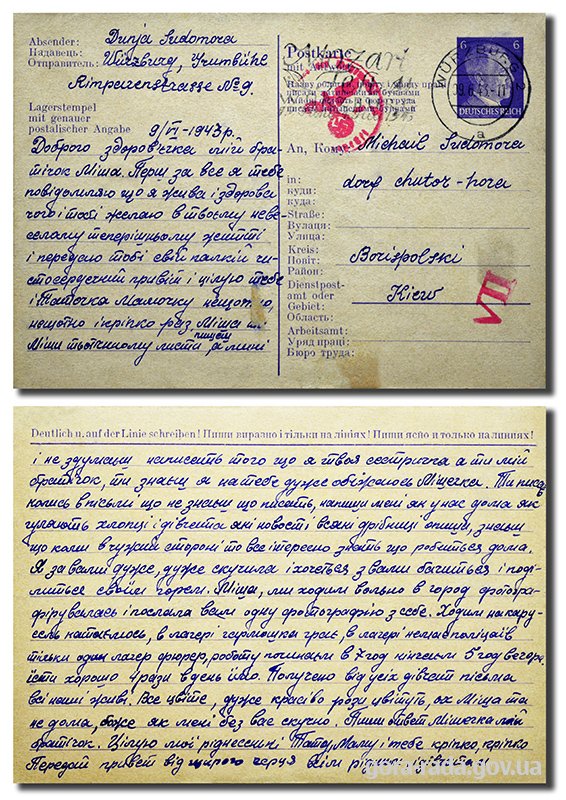 Absender: Dunja Sudomora
Надавець:
Отправитель: Würzburg,
№ 9.
Lagerstempel
mit genauer
postalischer Angabe
9/VI-1943р.
Доброго здоров'ячка мій бра-
тічок Міша. Перш за все я тебе
повідомляю що я жива і здорова
чого і тобі желаю в твоєму неве-
селому теперішньому житті
і передаю тобі свій палкий чи-
стосердечний привіт і цілую тебе
і Таточка Мамочку нещотно,
нещотно і кріпко раз. Міша ти
Міши тьотчиному листи пишеш а мині
Postkarte
mit Antwort
6
6
DEUTSCHES REICH
WÜRZBURG 2
a
An, Кому: Michail Sudomora
in:
куди:
куда:
dorf chutor-hora
Straße:
Вулиця:
Улица:
Kreis:
Повіт:
Район:
Borispolski
Dienstpost-
amt oder
Gebiet:
Область:
Kiew
Arbeitsamt:
Уряд праці:
Бюро труда:
VII
Deutlich u. auf der Linie schreiben! Пиши виразно і тільки на лініях! Пиши ясно и только на линиях!
і не здумаєш написать того що я твоя сестричка а ти мій
братічок, ти знаєш я на тебе дуже обіжаюсь Мішечка. Ти писав
колись в пісьмі що не знаєш що писать, напиши мені як у нас дома як
гуляють хлопці і дівчата які новості всякі дрібниці опиши, знаєш
що коли в чужий стороні то все інтересно знать що робиться дома.
Я за вами дуже, дуже скучила і хочеться з вами бачиться і поді-
литься своїм горем. Міша, ми ходили вольно в город фотогра-
фірувалась і послала вам одну фотографію з себе. Ходили на кару-
сель катались, в лагері гармошка грає, в лагері немає поліцаїв
тільки один лагер фюрер, роботу починаєм в 7 год кінчаєм 5 год вечора
їсти хорошо 4 рази в день їмо. Получено від усіх дівчат пісьма
всі наші живі. Все цвіте, дуже красіво рози цвітуть, ох Міша та
не дома, боже як мені без вас скучно. Пиши ответ Мішечка мій
братічок. Цілую мої ріднесенькі Тата, Маму і тебе кріпко, кріпко
Передай привєт від щирого серця всім рідним і дівчатам
gorsrada.gov.ua